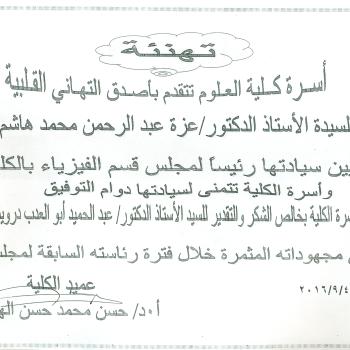 تهنئة
أسرة كلية العلوم تتقدم بأصدق التهاني القلبية
لسيدة الأستاذ الدكتور/عزة عبد الرحمن محمد هاشم
يين سيادتها رئيساً لمجلس قسم الفيزياء بالكل
وأسرة الكلية تتمنى لسيادتها دوام التوفيق
سرة الكلية بخالص الشكر والتقدير للسيد الأستاذ الدكتور/ عبد الحميد أبو العب درويـ
مجهوداته المثمرة خلال فترة رئاسته السابقة لمجلـ
عميد الكلية
٢٠١٦/٩/٤
أ.د/ حسن محمد حسن الهـ